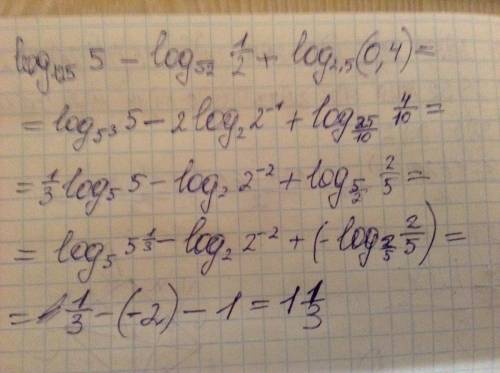 log₁₂₅ 5 − log_√2 1/2 + log₂,₅(0,4) =
= log_5³ 5 − 2 log₂ 2⁻¹ + log_25/10 4/10 =
= 1/3 log₅ 5 − log₂ 2⁻² + log_5/2 2/5 =
= log₅ 5^1/3 − log₂ 2⁻² + (− log_2/5 2/5) =
= 1/3 − (−2) − 1 = 1 1/3